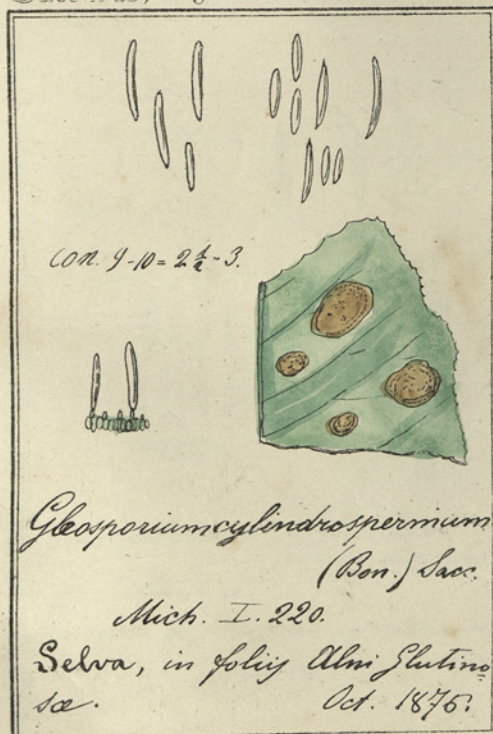 con. 9-10 = 2½ - 3.
Gloeosporium cylindrospermum
(Bon.) Sacc.
Mich. I. 220.
Selva, in foliis Alni Glutino
sæ. Oct. 1875.